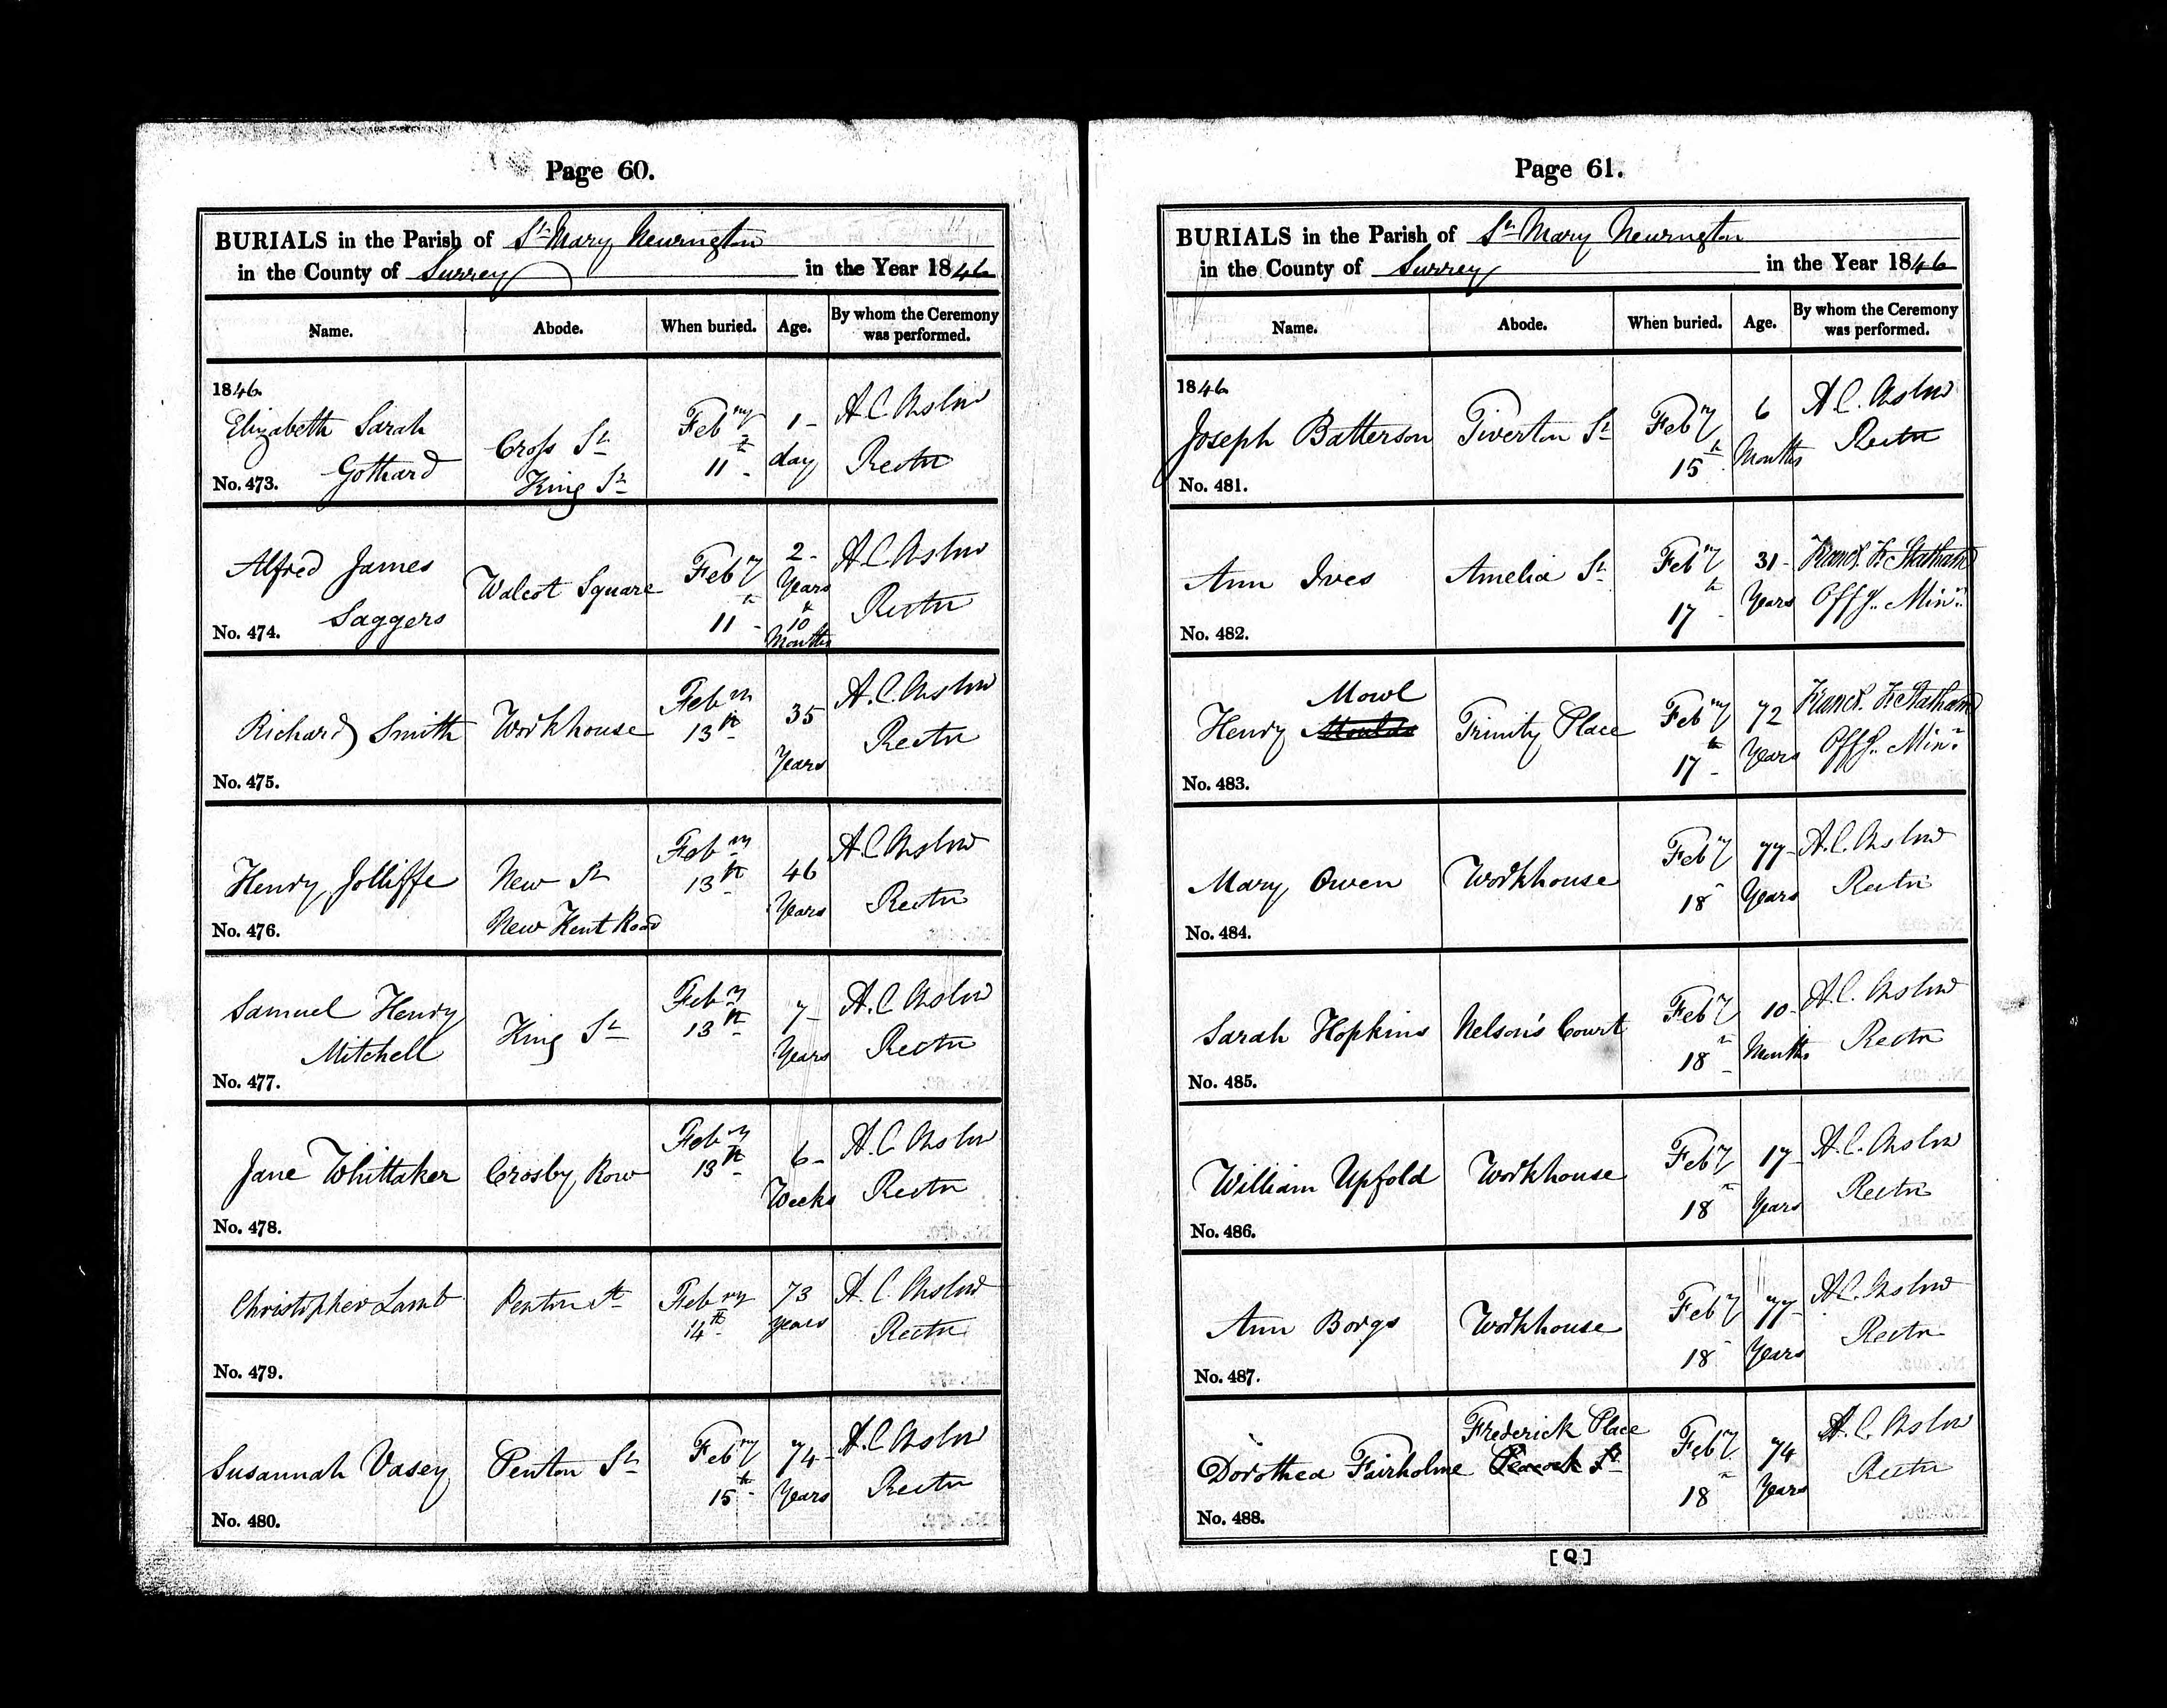 Page 60.
BURIALS in the Parish of St. Mary Newington
in the County of Surrey in the Year 1846
Name. Abode. When buried. Age. By whom the Ceremony was performed.
1846.
Elizabeth Sarah Gothard Cross St King St Febry 11th 1 day A. C. Onslow Rector
No. 473.
Alfred James Saggers Walcot Square Feby 11th 2 Years & 10 Months A C Onslow Rector
No. 474.
Richard Smith Workhouse Feby 13th 35 Years A. C. Onslow Rector
No. 475.
Henry Jolliffe New St New Kent Road Feby 13th 46 Years A. C Onslow Rector
No. 476.
Samuel Henry Mitchell King St Feby 13th 7 Years A. C Onslow Rector
No. 477.
Jane Whittaker Crosby Row Feby 13th 6 Weeks A. C. Onslow Rector
No. 478.
Christopher Lamb Penton St Febry 14th 73 years A. C. Onslow Rector
No. 479.
Susannah Vasey Penton St Febry 15th 74 Years A. C. Onslow Rector
No. 480.
Page 61.
BURIALS in the Parish of St. Mary Newington
in the County of Surrey in the Year 1846
Name. Abode. When buried. Age. By whom the Ceremony was performed.
1846
Joseph Batterson Tiverton St Feby 15th 6 Months A C. Onslow Rector
No. 481.
Ann Ives Amelia St Feby 17th 31 Years Francs. F. Statham Offg. Minr.
No. 482.
Henry Mowl Moulds Trinity Place Febry 17th 72 Years Francs. F. Statham Offg. Minr.
No. 483.
Mary Owen Workhouse Feby 18 77 Years A. C. Onslow Rector
No. 484.
Sarah Hopkins Nelson's Court Feby 18th 10 Months A. C. Onslow Rector
No. 485.
William Upfold Workhouse Feby 18th 17 Years A. C. Onslow Rector
No. 486.
Ann Borgs Workhouse Feby 18 77 Years A. C. Onslow Rector
No. 487.
Dorothea Fairholme Frederick Place Peacock St Feby 18th 74 Years A. C. Onslow Rector
No. 488.
[Q]